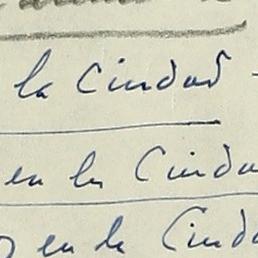 la Ciudad
en la Ciuda
en la Ciuda